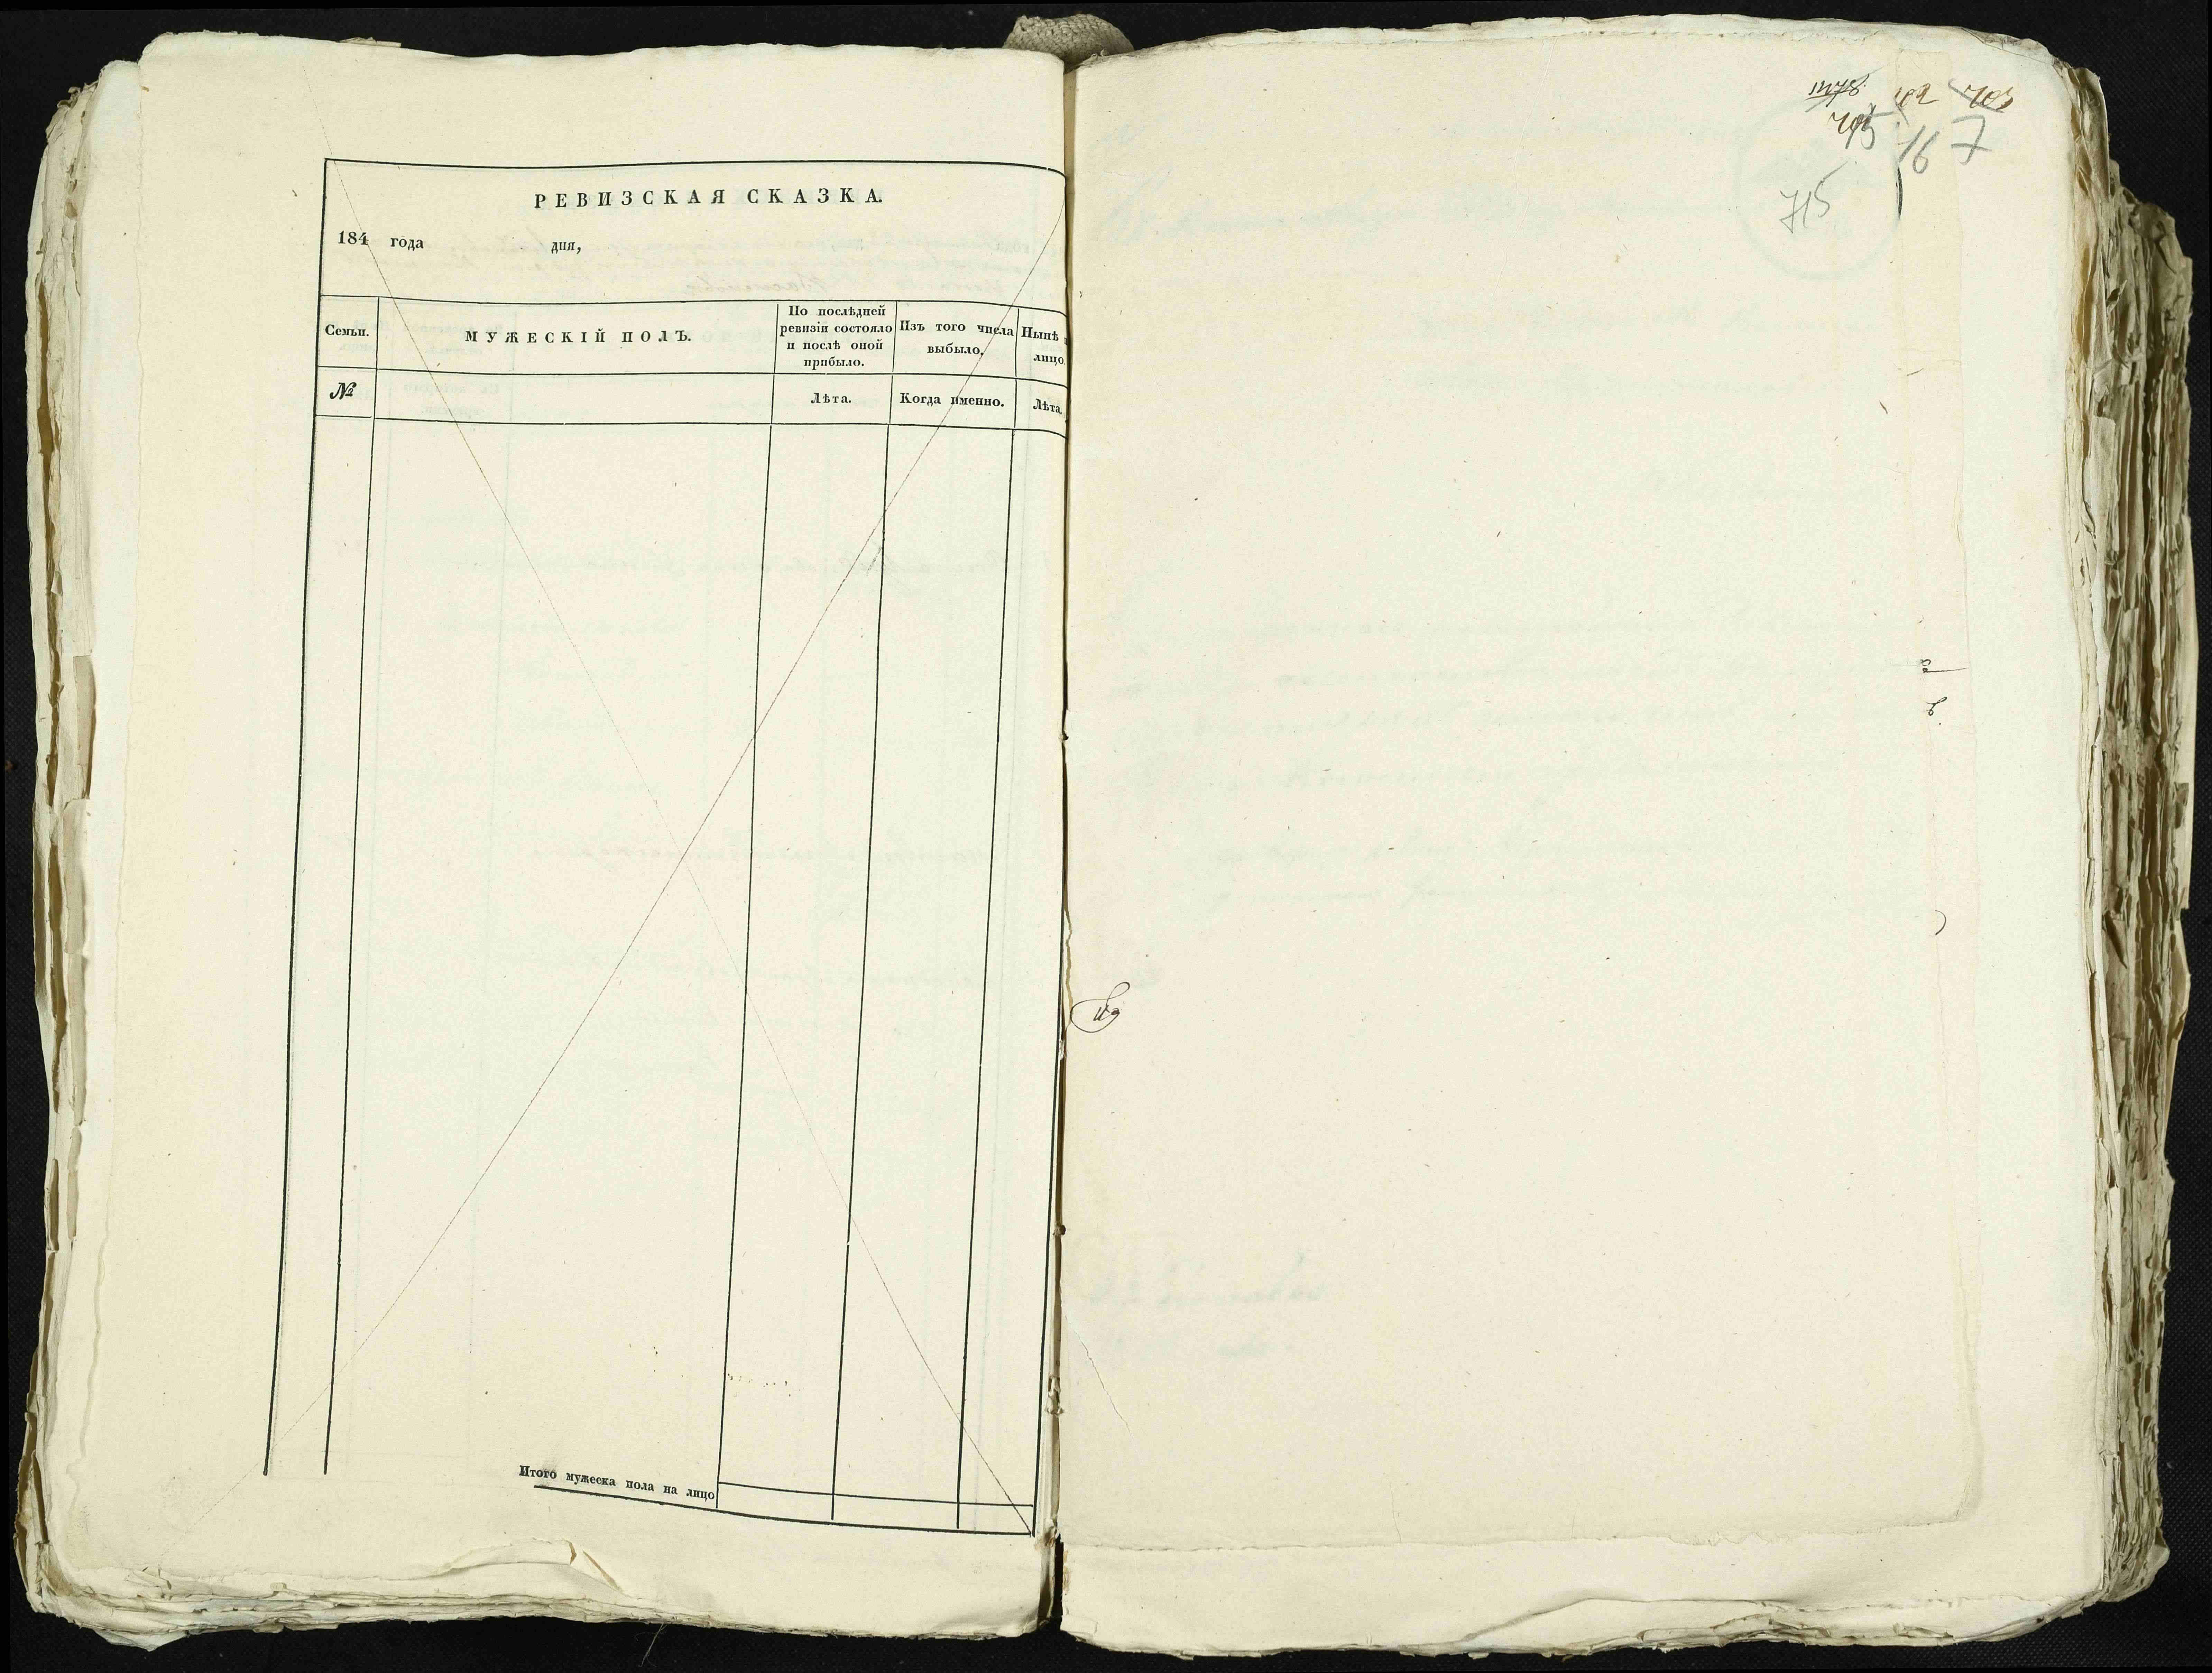 РЕВИЗСКАЯ СКАЗКА.
184 года дня,
Семьи.
МУЖЕСКІЙ ПОЛЪ.
По послѣдней
ревизіи состояло
и послѣ оной
прибыло.
Изъ того числа
выбыло.
Нынѣ
лицо.
№
Лѣта.
Когда именно.
Лѣта.
Итого мужеска пола на лицо
703
167
715